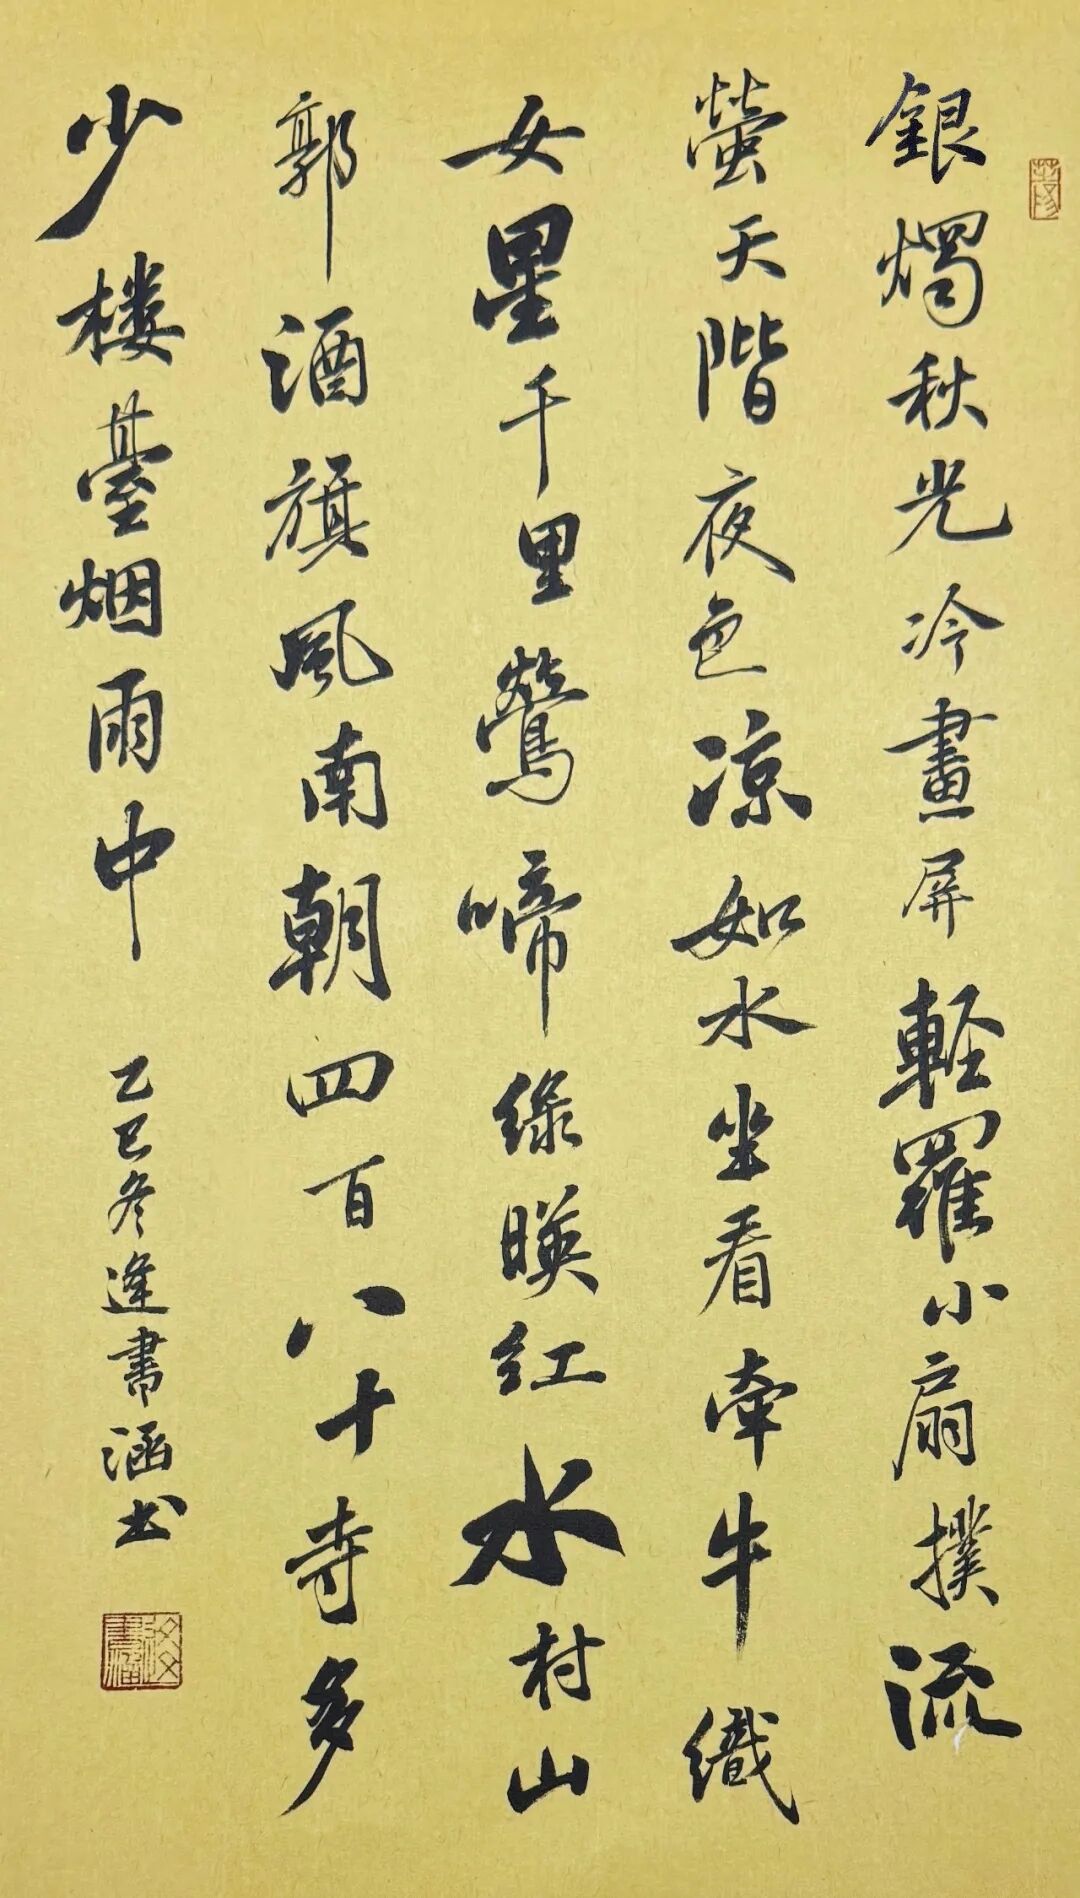 銀燭秋光冷畫屏軽羅小扇撲流
螢天階夜色凉如水坐看牽牛織
女星千里鶯啼綠暎红水村山
郭酒旗風南朝四百八十寺多
少楼臺烟雨中
乙巳冬逢書涵书